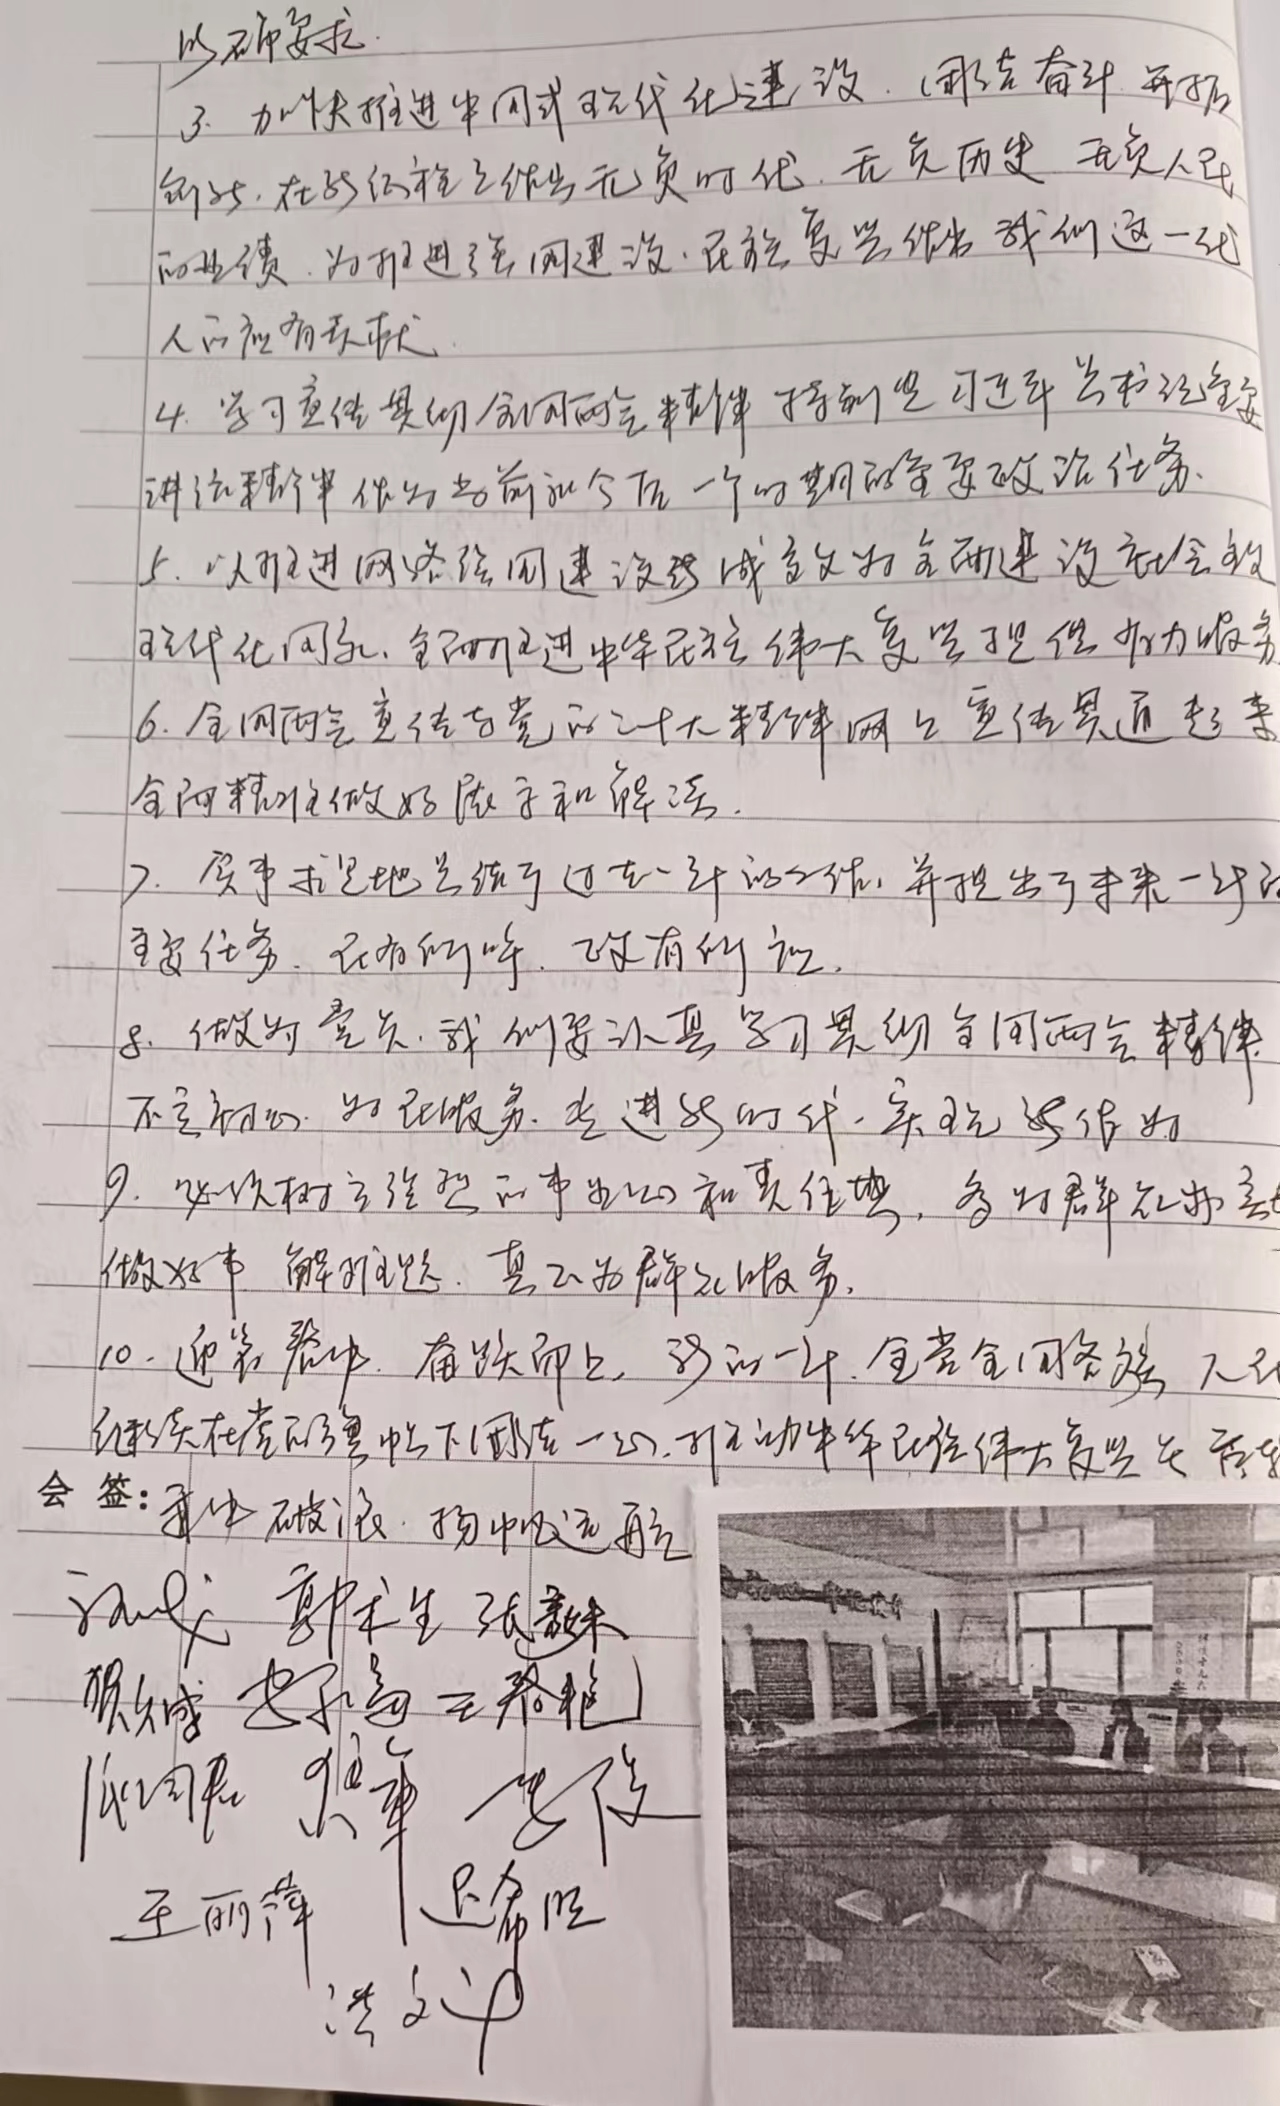 明确要求.
3. 加快推进中国式现代化建设.团结奋斗.开拓
创新.在新征程上作出无负时代.无负历史 无负人民
的业绩.为推进强国建设.民族复兴作出我们这一代
人的应有贡献.
4. 学习宣传贯彻全国两会精神 特别是习近平总书记重要
讲话精神作为当前和今后一个时期的重要政治任务.
5. 以推进网络强国建设新成效为全面建设社会主义
现代化国家.全面推进中华民族伟大复兴提供有力服务
6. 全国两会宣传与党的二十大精神网上宣传贯通起来
全面精准做好展示和解读.
7. 实事求是地总结了过去一年的工作,并提出了未来一年的
主要任务.民有所呼.政有所应.
8. 做为党员.我们要认真学习贯彻全国两会精神.
不忘初心.为民服务.走进新时代.实现新作为
9. 必须树立强烈的事业心和责任感,多为群众办实事
做好事 解难题.真正为群众服务.
10. 迎着春风.奋跃而上,新的一年.全党全国各族人民
继续在党的旗帜下团结一心.推动中华民族伟大复兴
会 签:
乘风破浪.扬帆远航
郭术生
王丽萍